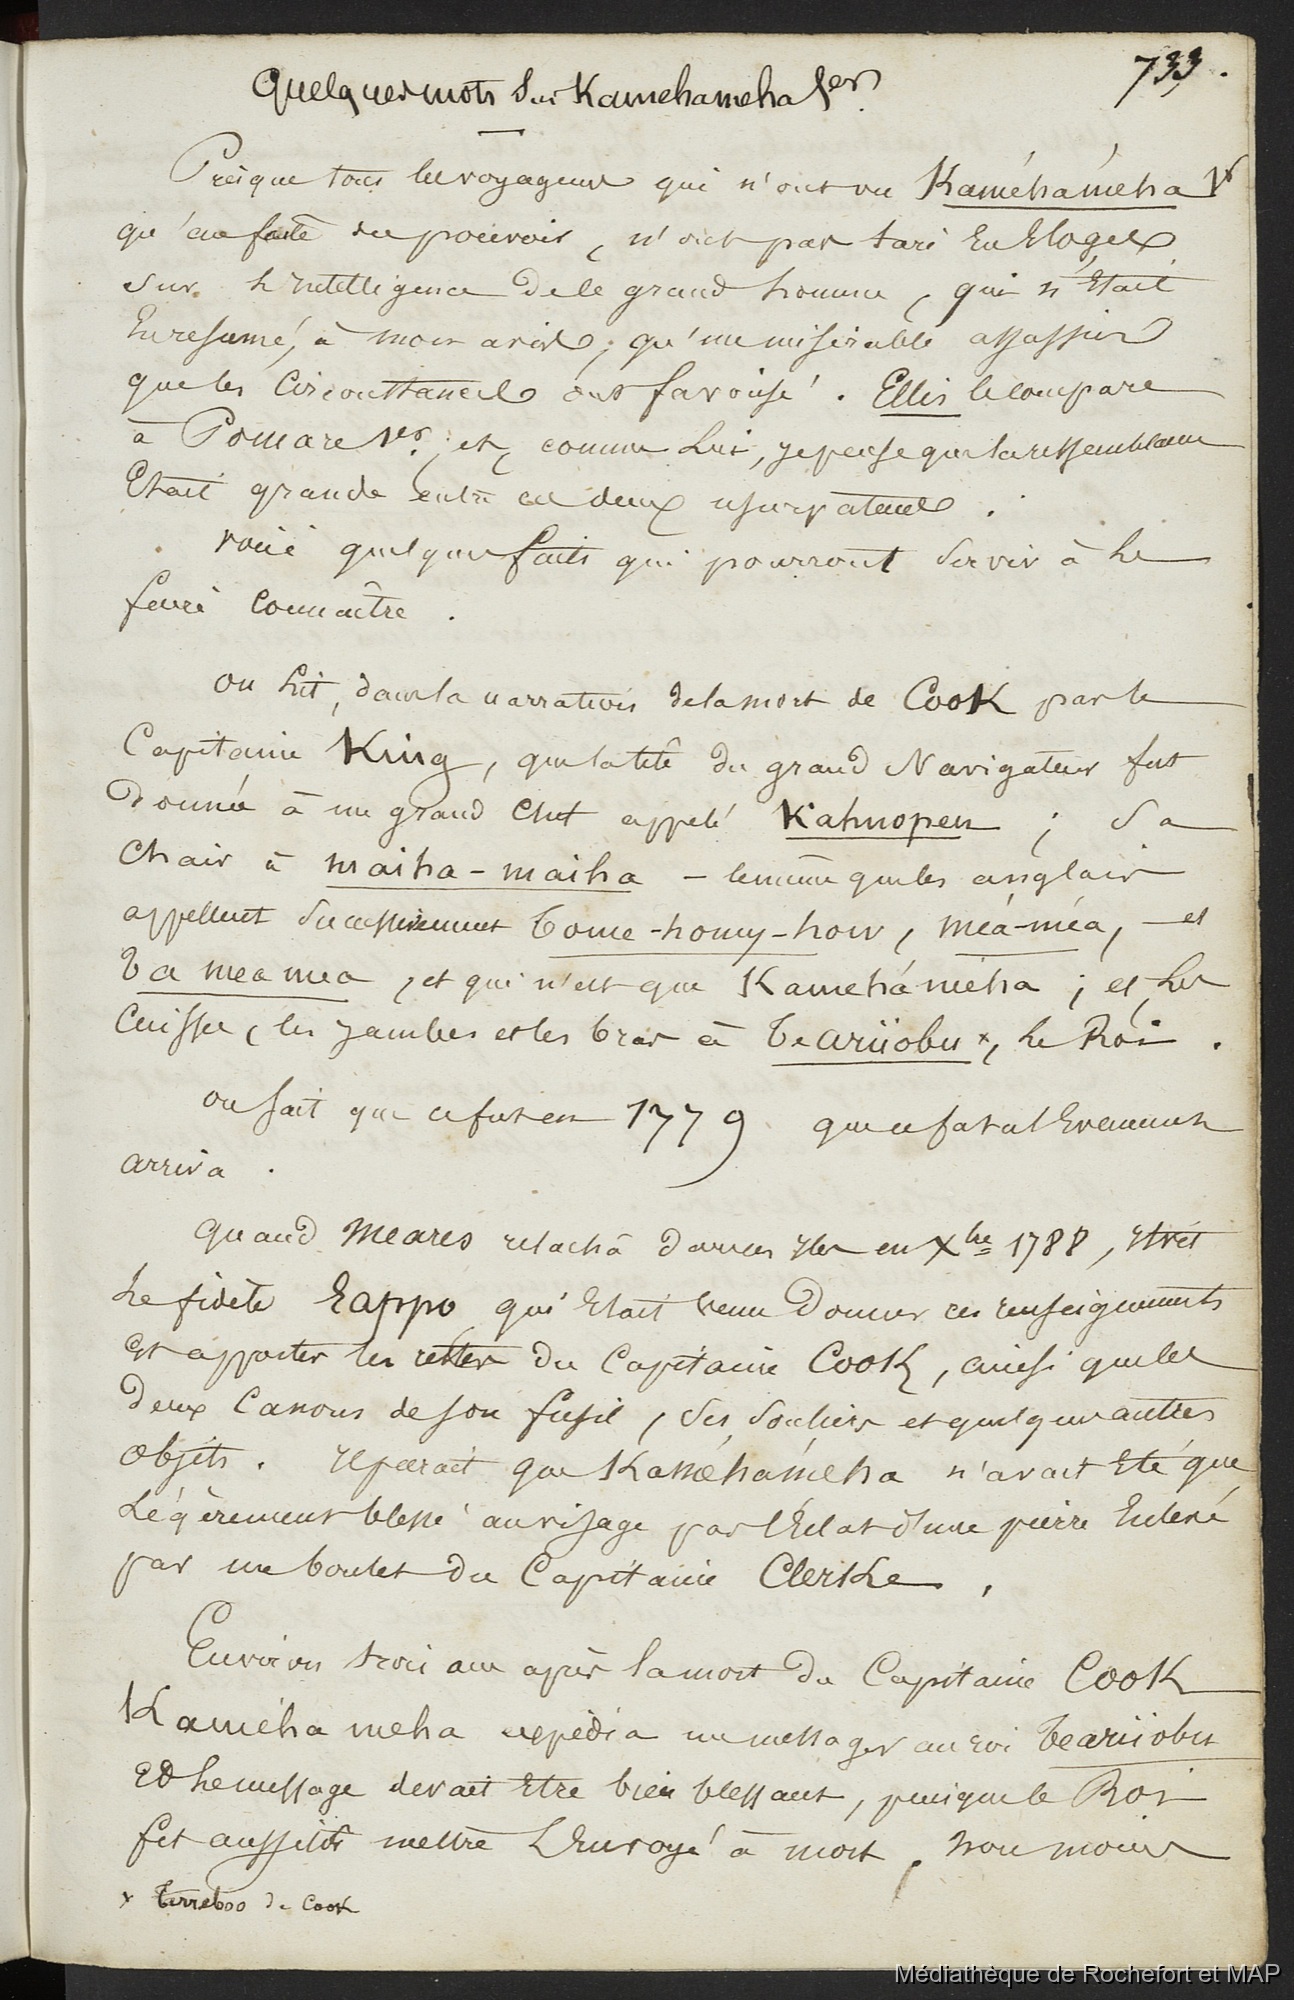 733.
Quelques mots sur Kamehameha 1er.
Presque tous les voyageurs qui n'ont vu Kaméháméha 1er
qu'au faite du pouvoir, n'ont pas tari en Eloges
sur l'intelligence de ce grand homme, qui n'Etait
En resumé, à mon avis, qu'un miserable assassin
que les Circonstances ont favorisé. Ellis le compare
à Pomare 1er. et, comme lui, je pense que la ressemblance
Etait grande entre ces deux usurpateurs.
voici quelques faits qui pourront servir à le
faire Connaître.
on lit, dans la narration de la mort de Cook par le
Capitaine King, que la tête du grand Navigateur fut
Donnée à un grand Chef appelé Kahuopeu ; sa
Chair à maiha-maiha - le même que les anglais
appellent successivement Tome-homy-how, méa-méa, et
Ta mea mea, et qui n'est que Kameháméha ; et les
Cuisses, les jambes et les bras à Teariiobu x, le Roi.
on sait que ce fut en 1779 que ce fatal Evenement
arriva.
Quand Meares relacha dans ces Iles en Xbre 1788,
le fidèle Eappo qui Etait venu Donner ces renseignements
et apporter les restes du Capitaine Cook, ainsi que les
Deux Canons de son fusil, ses souliers et quelques autres
objets. Il parait que Kaméháméha n'avait Eté que
Légèrement blessé au visage par l'Eclat d'une pierre Enlevé
par un boulet du Capitaine Clerke.
Environ trois ans après la mort du Capitaine Cook
Kaméha meha expédia un messager au roi Teariiobu
Et le message devait Etre bien blessant, puisque le Roi
fit aussitôt mettre L'Envoyé à mort. Non moins
x Terreboo de Cook
Médiathèque de Rochefort et MAP